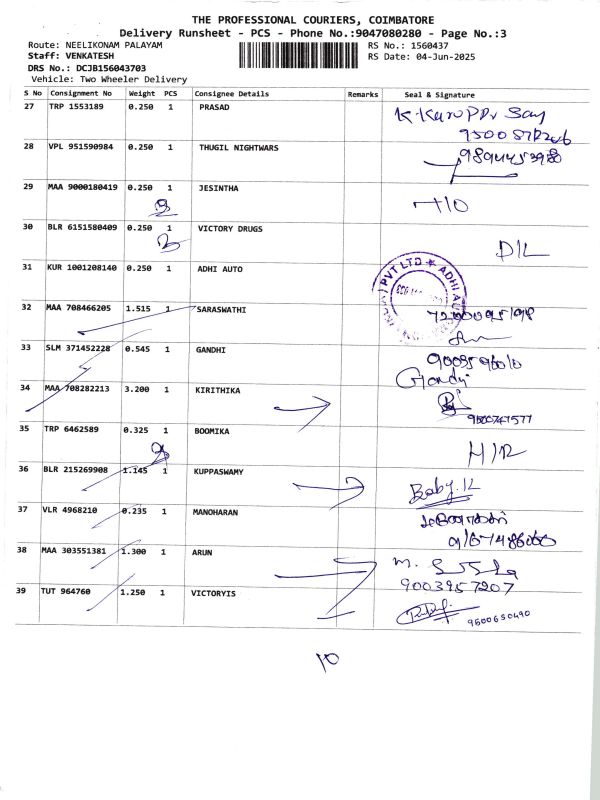 THE PROFESSIONAL COURIERS, COIMBATORE
Delivery Runsheet - PCS - Phone No.:9047080280 - Page No.:3
Route: NEELIKONAM PALAYAM RS No.: 1560437
Staff: VENKATESH RS Date: 04-Jun-2025
DRS No.: DCJB156043703
Vehicle: Two Wheeler Delivery
S No Consignment No Weight PCS Consignee Details Remarks Seal & Signature
27 TRP 1553189 0.250 1 PRASAD
28 VPL 951590984 0.250 1 THUGIL NIGHTWARS
29 MAA 9000180419 0.250 1 JESINTHA
30 BLR 6151580409 0.250 1 VICTORY DRUGS
D/L
31 KUR 1001208140 0.250 1 ADHI AUTO
PVT LTD ★ ADHI AU
32 MAA 708466205 1.515 1 SARASWATHI
33 SLM 371452228 0.545 1 GANDHI
Gandhi
34 MAA 708282213 3.200 1 KIRITHIKA
9600747577
35 TRP 6462589 0.325 1 BOOMIKA
36 BLR 215269908 1.145 1 KUPPASWAMY
Baby.K
37 VLR 4968210 0.235 1 MANOHARAN
38 MAA 303551381 1.300 1 ARUN
9003957207
39 TUT 964760 1.250 1 VICTORYIS
9600650490
10